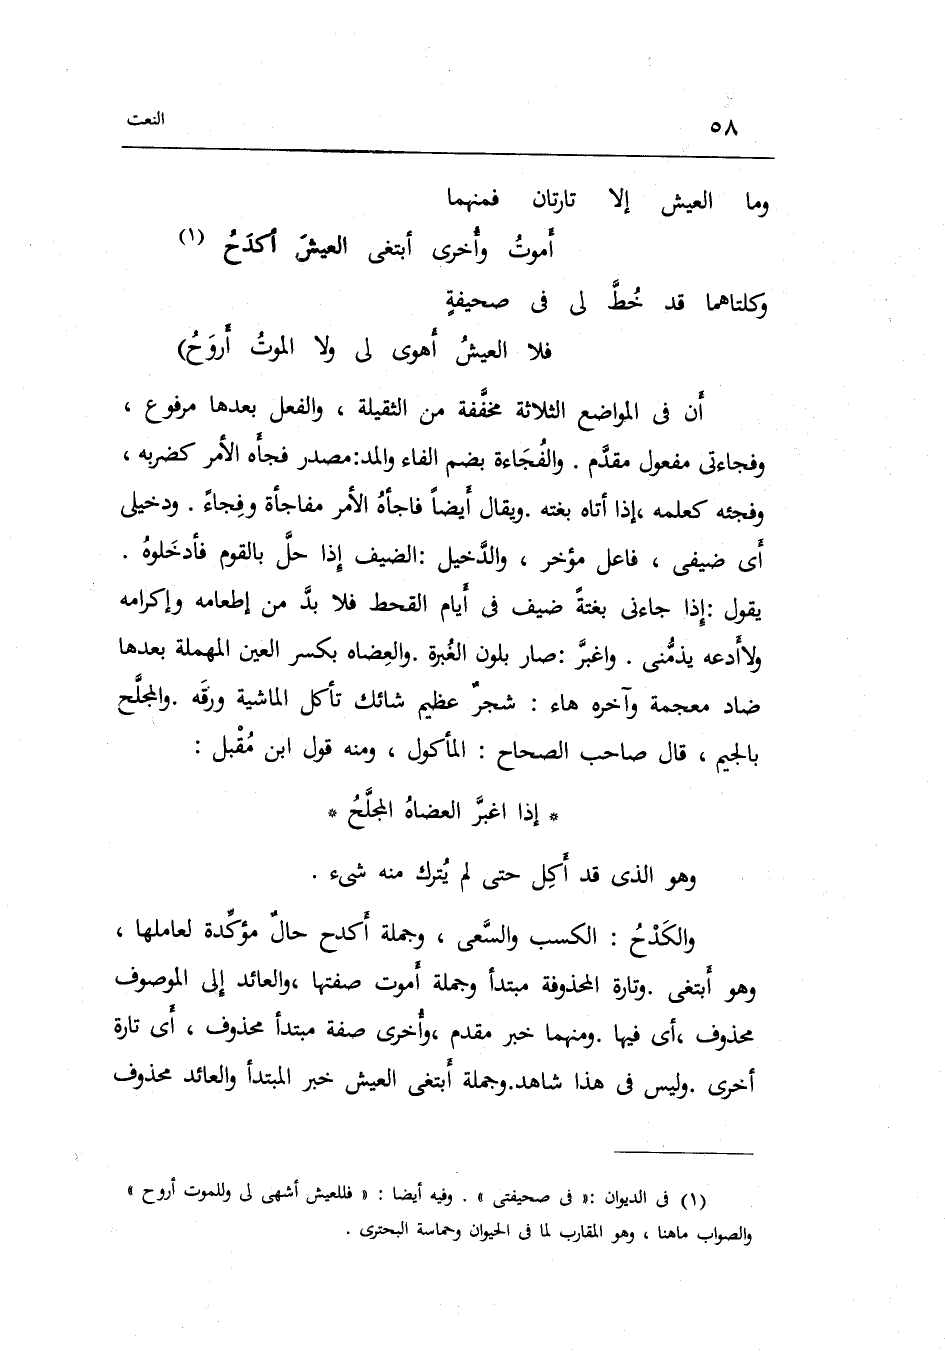 ٥٨ النعت
وما العيش إلا تارتان فمنهما
أَموتُ وأُخرى أبتغى العيشَ أكدَحُ (١)
وكلتاهما قد خُطَّ لى فى صحيفةٍ
فلا العيشُ أَهوى لى ولا الموتُ أَروَحُ)
أَن فى المواضع الثلاثة مخفَّفة من الثقيلة ، والفعل بعدها مرفوع ،
وفجاءتى مفعول مقدَّم . والفُجَاءة بضم الفاء والمد:مصدر فجأَه الأمر كضربه ،
وفجئه كعلمه ،إذا أتاه بغته .ويقال أَيضاً فاجأهُ الأمر مفاجأة وفِجاءً . ودخيلى
أَى ضيفى ، فاعل مؤخر ، والدَّخيل :الضيف إِذا حلَّ بالقوم فأدخَلوهُ .
يقول :إِذا جاءنى بغتةً ضيف فى أَيام القحط فلا بدَّ من إطعامه وإكرامه
ولاأَدعه يذمُّنى . واغبرَّ :صار بلون الغُبرة .والعِضاه بكسر العين المهملة بعدها
ضاد معجمة وآخره هاء : شجرٌ عظيم شائك تأكل الماشية ورقَه .والمجلَّح
بالجيم ، قال صاحب الصحاح : المأكول ، ومنه قول ابن مُقْبل :
* إذا اغبرَّ العضاهُ المجلَّحُ *
وهو الذى قد أَكِل حتى لم يُترك منه شىء .
والكَدْحُ : الكسب والسَّعى ، وجملة أَكدح حالٌ مؤكِّدة لعاملها ،
وهو أَبتغى .وتارة المحذوفة مبتدأ وجملة أَموت صفتها ،والعائد إِلى الموصوف
محذوف ،أى فيها .ومنهما خبر مقدم ،وأُخرى صفة مبتدأ محذوف ، أَى تارة
أخرى .وليس فى هذا شاهد.وجملة أَبتغى العيش خبر المبتدأ والعائد محذوف
(١) فى الديوان :« فى صحيفتى » . وفيه أيضا : « فللعيش أشهى لى وللموت أروح »
والصواب ماهنا ، وهو المقارب لما فى الحيوان وحماسة البحترى .